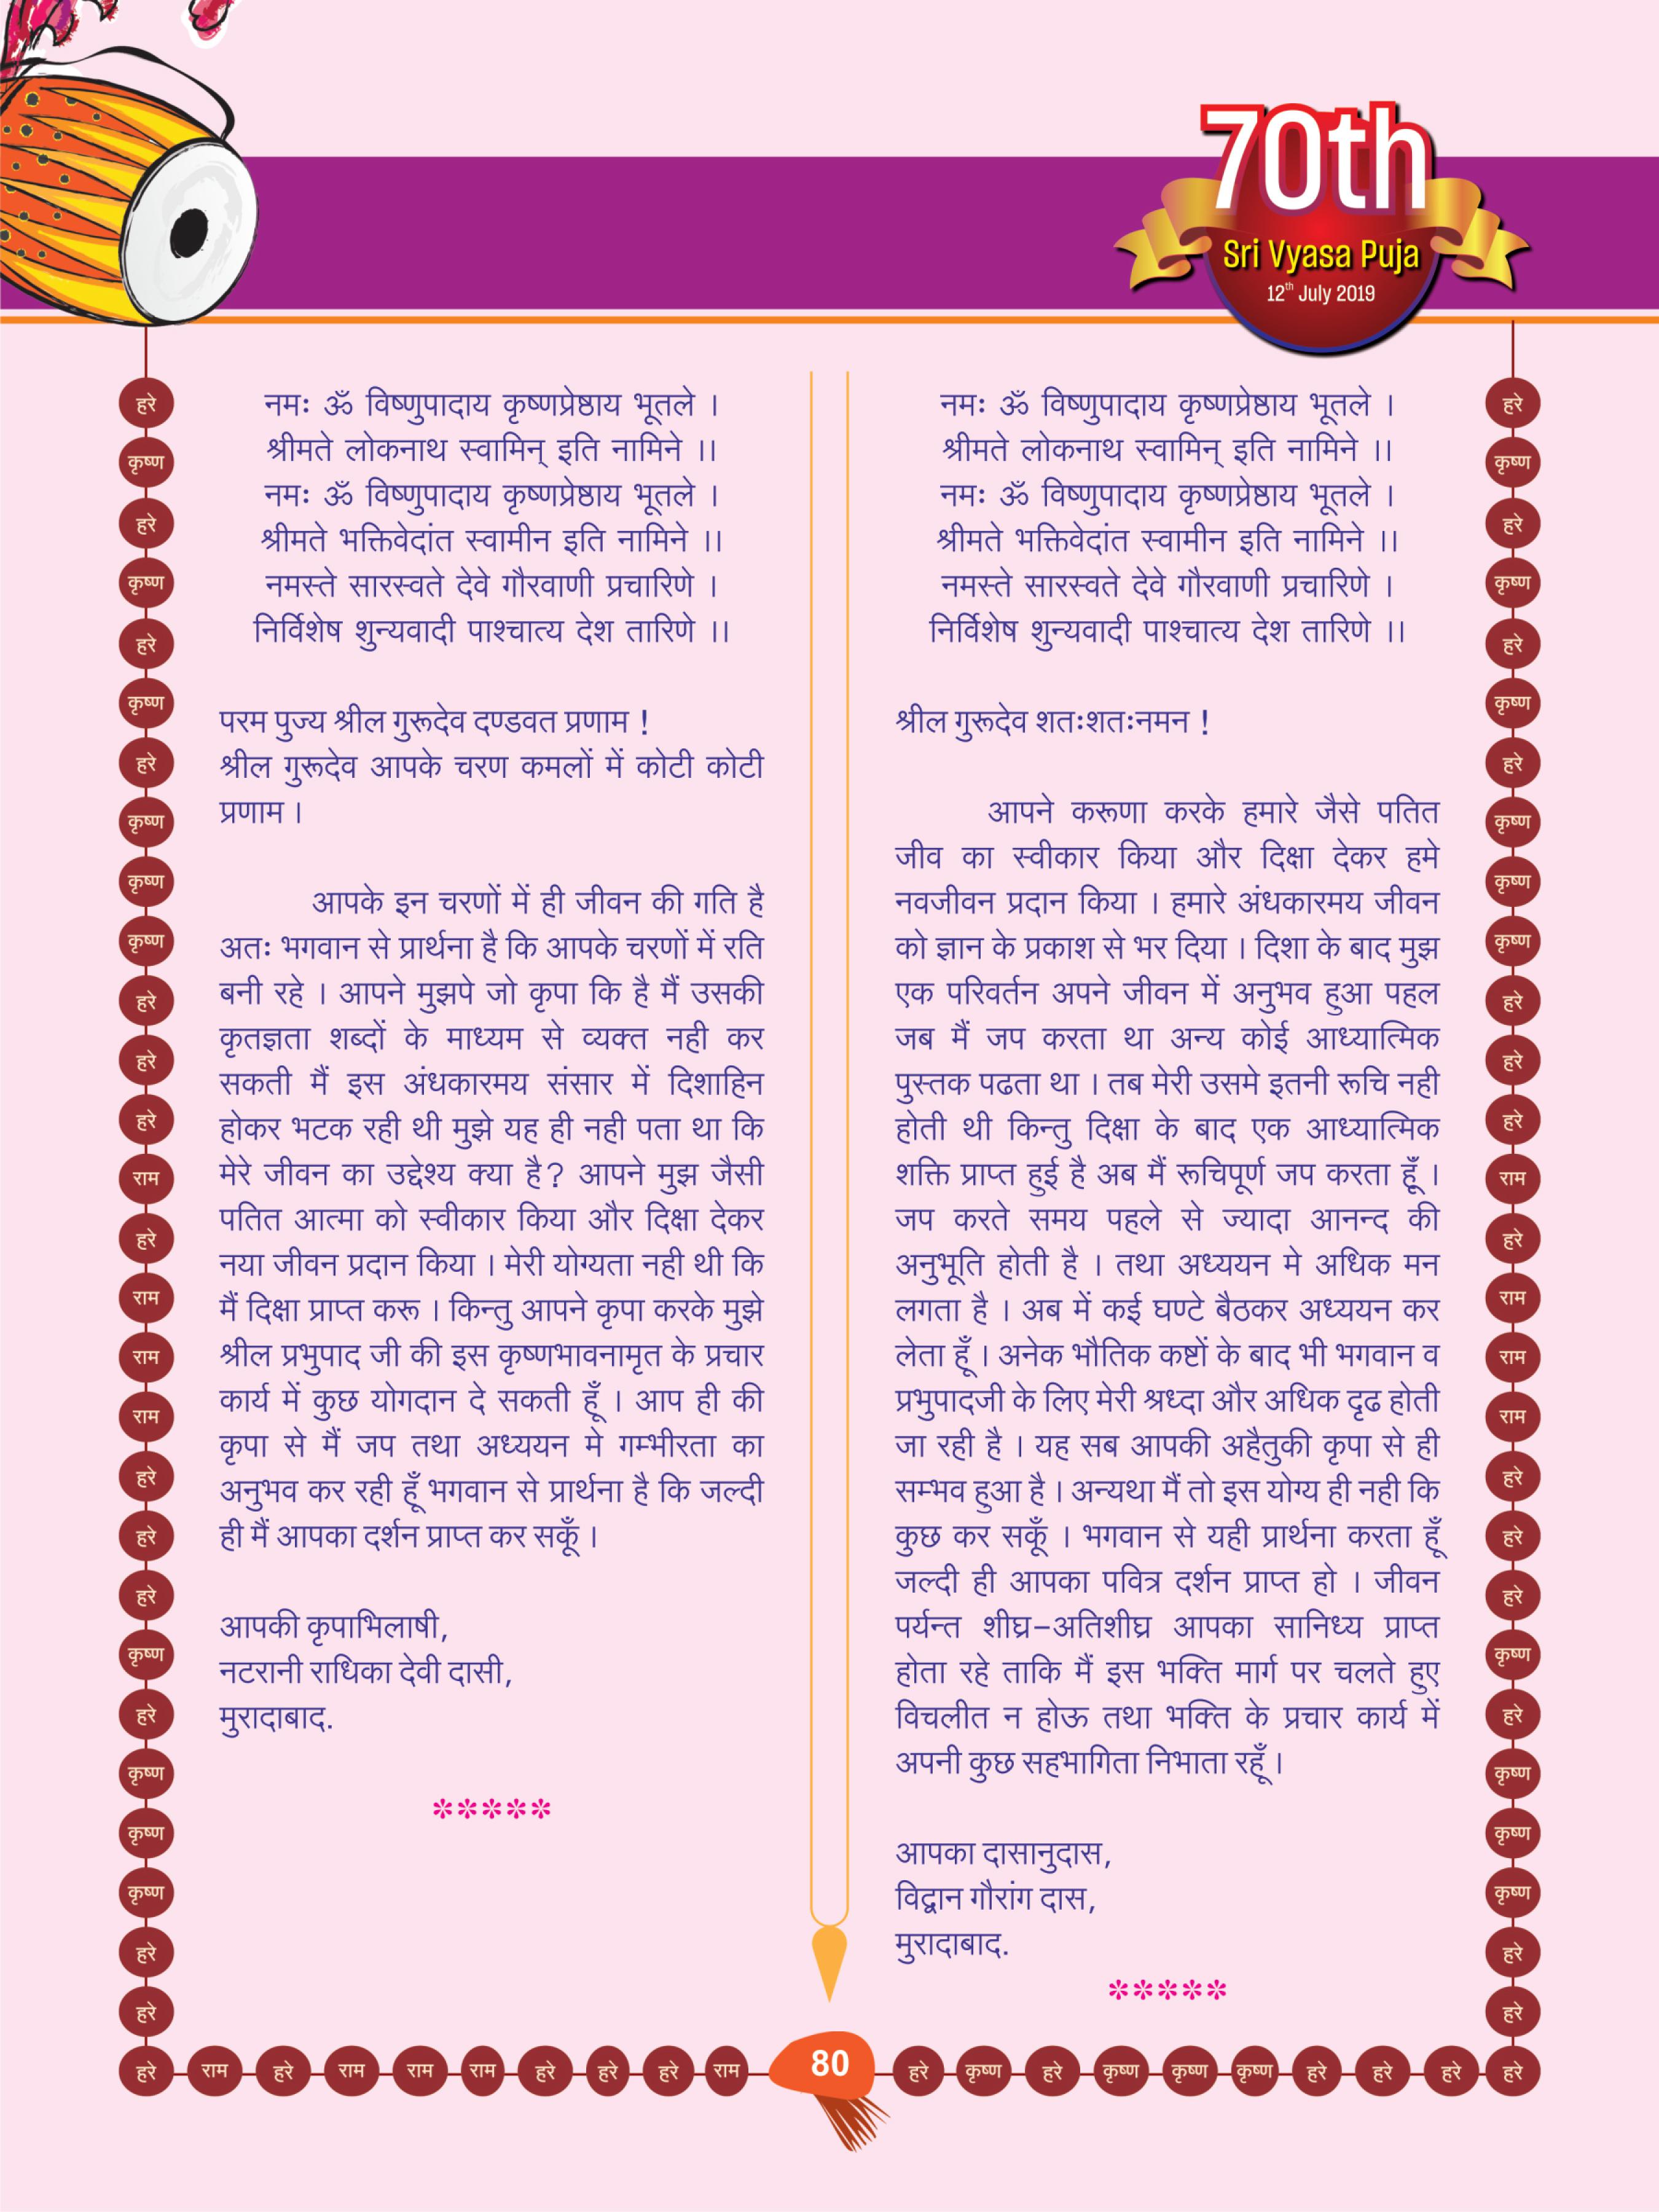 70th
Sri Vyasa Puja
12th July 2019
नमः ॐ विष्णुपादाय कृष्णप्रेष्ठाय भूतले ।
श्रीमते लोकनाथ स्वामिन् इति नामिने ।।
नमः ॐ विष्णुपादाय कृष्णप्रेष्ठाय भूतले ।
श्रीमते भक्तिवेदांत स्वामीन इति नामिने ।।
नमस्ते सारस्वते देवे गौरवाणी प्रचारिणे ।
निर्विशेष शुन्यवादी पाश्चात्य देश तारिणे ।।
परम पुज्य श्रील गुरूदेव दण्डवत प्रणाम !
श्रील गुरूदेव आपके चरण कमलों में कोटी कोटी
प्रणाम ।
आपके इन चरणों में ही जीवन की गति है
अतः भगवान से प्रार्थना है कि आपके चरणों में रति
बनी रहे । आपने मुझपे जो कृपा कि है मैं उसकी
कृतज्ञता शब्दों के माध्यम से व्यक्त नही कर
सकती मैं इस अंधकारमय संसार में दिशाहिन
होकर भटक रही थी मुझे यह ही नही पता था कि
मेरे जीवन का उद्देश्य क्या है? आपने मुझ जैसी
पतित आत्मा को स्वीकार किया और दिक्षा देकर
नया जीवन प्रदान किया । मेरी योग्यता नही थी कि
मैं दिक्षा प्राप्त करू । किन्तु आपने कृपा करके मुझे
श्रील प्रभुपाद जी की इस कृष्णभावनामृत के प्रचार
कार्य में कुछ योगदान दे सकती हूँ । आप ही की
कृपा से मैं जप तथा अध्ययन मे गम्भीरता का
अनुभव कर रही हूँ भगवान से प्रार्थना है कि जल्दी
ही मैं आपका दर्शन प्राप्त कर सकूँ ।
आपकी कृपाभिलाषी,
नटरानी राधिका देवी दासी,
मुरादाबाद.
*****
नमः ॐ विष्णुपादाय कृष्णप्रेष्ठाय भूतले ।
श्रीमते लोकनाथ स्वामिन् इति नामिने ।।
नमः ॐ विष्णुपादाय कृष्णप्रेष्ठाय भूतले ।
श्रीमते भक्तिवेदांत स्वामीन इति नामिने ।।
नमस्ते सारस्वते देवे गौरवाणी प्रचारिणे ।
निर्विशेष शुन्यवादी पाश्चात्य देश तारिणे ।।
श्रील गुरूदेव शतःशतःनमन !
आपने करूणा करके हमारे जैसे पतित
जीव का स्वीकार किया और दिक्षा देकर हमे
नवजीवन प्रदान किया । हमारे अंधकारमय जीवन
को ज्ञान के प्रकाश से भर दिया । दिशा के बाद मुझ
एक परिवर्तन अपने जीवन में अनुभव हुआ पहल
जब मैं जप करता था अन्य कोई आध्यात्मिक
पुस्तक पढता था । तब मेरी उसमे इतनी रूचि नही
होती थी किन्तु दिक्षा के बाद एक आध्यात्मिक
शक्ति प्राप्त हुई है अब मैं रूचिपूर्ण जप करता हूँ ।
जप करते समय पहले से ज्यादा आनन्द की
अनुभूति होती है । तथा अध्ययन मे अधिक मन
लगता है । अब में कई घण्टे बैठकर अध्ययन कर
लेता हूँ । अनेक भौतिक कष्टों के बाद भी भगवान व
प्रभुपादजी के लिए मेरी श्रध्दा और अधिक दृढ होती
जा रही है । यह सब आपकी अहैतुकी कृपा से ही
सम्भव हुआ है । अन्यथा मैं तो इस योग्य ही नही कि
कुछ कर सकूँ । भगवान से यही प्रार्थना करता हूँ
जल्दी ही आपका पवित्र दर्शन प्राप्त हो । जीवन
पर्यन्त शीघ्र-अतिशीघ्र आपका सानिध्य प्राप्त
होता रहे ताकि मैं इस भक्ति मार्ग पर चलते हुए
विचलीत न होऊ तथा भक्ति के प्रचार कार्य में
अपनी कुछ सहभागिता निभाता रहूँ ।
आपका दासानुदास,
विद्वान गौरांग दास,
मुरादाबाद.
*****
हरे
कृष्ण
हरे
कृष्ण
हरे
कृष्ण
हरे
कृष्ण
कृष्ण
कृष्ण
हरे
हरे
हरे
राम
हरे
राम
राम
राम
हरे
हरे
हरे
कृष्ण
हरे
कृष्ण
कृष्ण
कृष्ण
हरे
हरे
हरे
कृष्ण
हरे
कृष्ण
हरे
कृष्ण
हरे
कृष्ण
कृष्ण
कृष्ण
हरे
हरे
हरे
राम
हरे
राम
राम
राम
हरे
हरे
हरे
कृष्ण
हरे
कृष्ण
कृष्ण
कृष्ण
हरे
हरे
हरे राम हरे राम राम राम हरे हरे हरे राम 80 हरे कृष्ण हरे कृष्ण कृष्ण कृष्ण हरे हरे हरे हरे